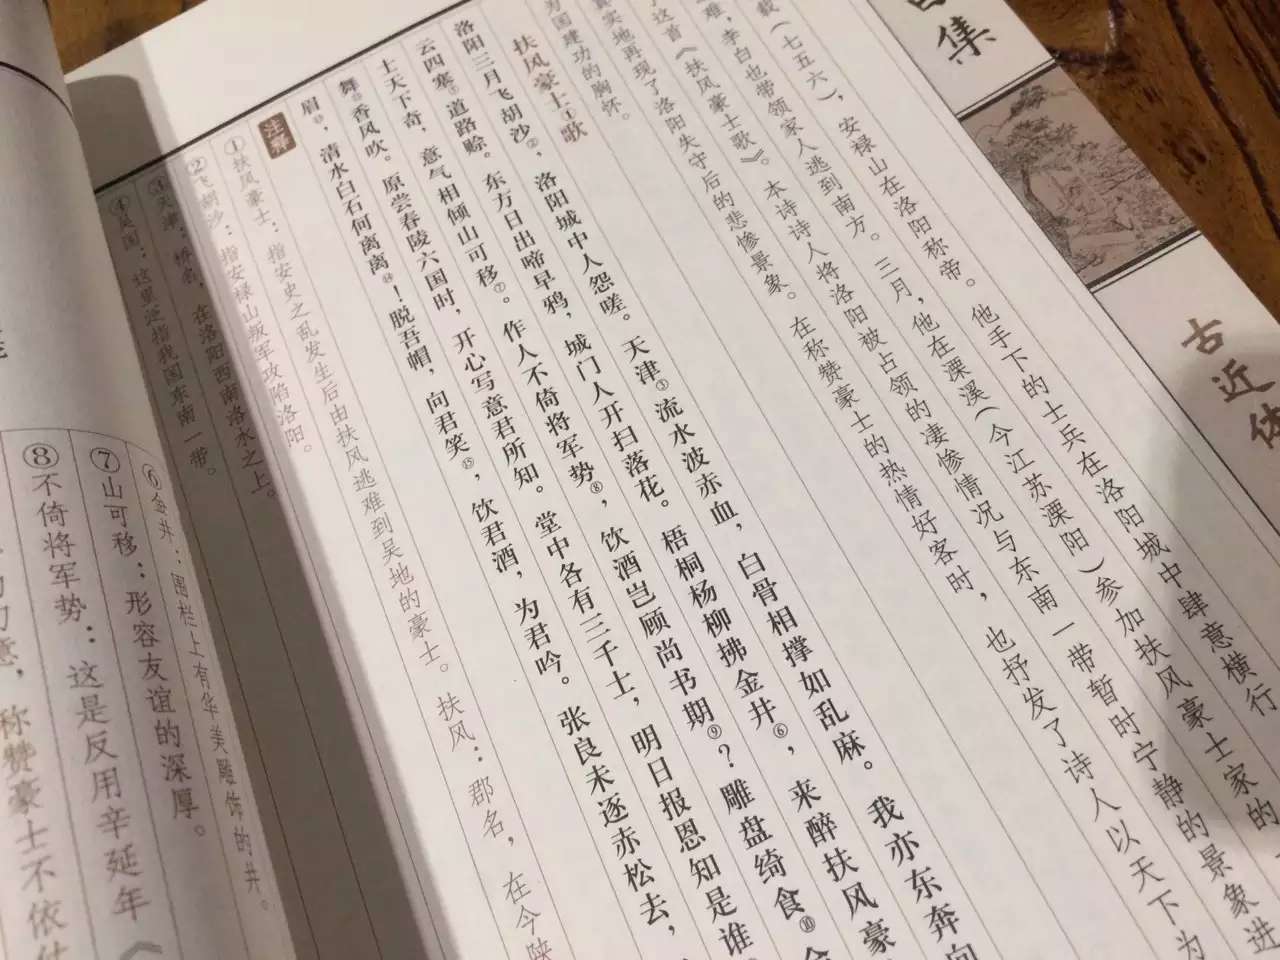 集
古近体
载（七五六），安禄山在洛阳称帝。他手下的士兵在洛阳城中肆意横行
难，李白也带领家人逃到南方。三月，他在溧溪（今江苏溧阳）参加扶风豪士家的
了这首《扶风豪士歌》。本诗诗人将洛阳被占领的凄惨情况与东南一带暂时宁静的景象进
真实地再现了洛阳失守后的悲惨景象。在称赞豪士的热情好客时，也抒发了诗人以天下为
为国建功的胸怀。
扶风豪士①歌
洛阳三月飞胡沙②，洛阳城中人怨嗟。天津③流水波赤血，白骨相撑如乱麻。我亦东奔向
云四塞⑤道路赊。东方日出啼早鸦，城门人开扫落花。梧桐杨柳拂金井⑥，来醉扶风豪
士天下奇，意气相倾山可移⑦。作人不倚将军势⑧，饮酒岂顾尚书期⑨？雕盘绮食⑩
舞香风吹。原尝春陵六国时，开心写意君所知。堂中各有三千士，明日报恩知是谁
眉，清水白石何离离！脱吾帽，向君笑⑮，饮君酒，为君吟。张良未逐赤松去，
注释
①扶风豪士：指安史之乱发生后由扶风逃难到吴地的豪士。扶风：郡名，在今陕
②飞胡沙：指安禄山叛军攻陷洛阳。
③天津：桥名，在洛阳西南洛水之上。
④吴国：这里泛指我国东南一带。
⑥金井：围栏上有华美雕饰的井。
⑦山可移：形容友谊的深厚。
⑧不倚将军势：这是反用辛延年《
意，称赞豪士不依仗